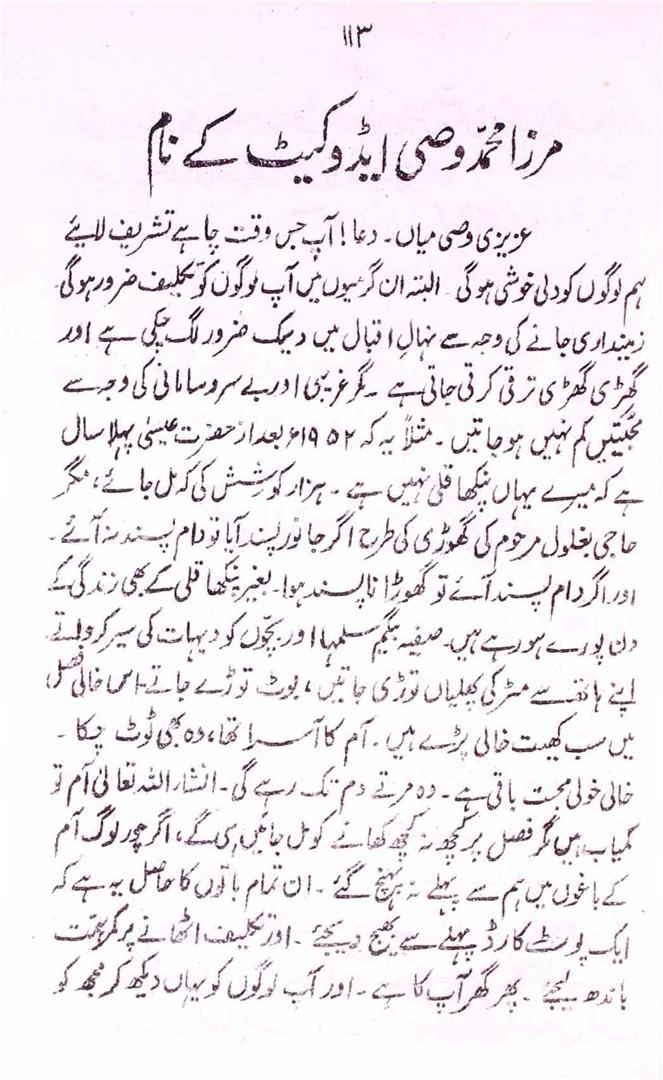 ۱۱۳
مرزا محمّد وصی ایڈوکیٹ کے نام
عزیزی وصی میاں۔ دعا! آپ جس وقت چاہے تشریف لایئے
ہم لوگوں کو دلی خوشی ہوگی۔ البتہ ان گرمیوں میں آپ لوگوں کو تکلیف ضرور ہوگی
زمینداری جانے کی وجہ سے نہالِ اقبال میں دیمک ضرور لگ چکی ہے اور
گھڑی گھڑی ترقی کرتی جاتی ہے۔ مگر غریبی اور بے سروسامانی کی وجہ سے
محبتیں کم نہیں ہو جاتیں۔ مثلاً یہ کہ ۱۹۵۲ء بعد از حضرت عیسیٰ پہلا سال
ہے کہ میرے یہاں پنکھا قلی نہیں ہے۔ ہزار کوشش کی کہ مل جائے، مگر
حاجی بغلول مرحوم کی گھوڑی کی طرح اگر جانور پسند آیا تو دام پسند نہ آئے۔
اور اگر دام پسند آئے تو گھوڑا ناپسند ہوا۔ بغیر پنکھا قلی کے بھی زندگی کے
دن پورے ہو رہے ہیں۔ صفیہ بیگم سلمہا اور بچّوں کو دیہات کی سیر کروا لیتے
اپنے ہاتھ سے مٹر کی پھلیاں توڑی جاتیں، بوٹ توڑے جاتے۔ اس خالی فصل
میں سب کھیت خالی پڑے ہیں۔ آم کا آسرا تھا، وہ بھی ٹوٹ چکا۔
خالی خولی محبت باقی ہے۔ وہ مرتے دم تک رہے گی۔ انشاء اللہ تعالیٰ آم تو
کمیاب ہیں مگر فصل پر کچھ نہ کچھ کھانے کو مل جائیں ہی گے، اگر چور لوگ آم
کے باغوں میں ہم سے پہلے نہ پہنچ گئے۔ ان تمام باتوں کا حاصل یہ ہے کہ
ایک پوسٹ کارڈ پہلے سے بھیج دیجئے۔ اور تکلیف اٹھانے پر کمرِ ہمّت
باندھ لیجئے۔ پھر گھر آپ کا ہے۔ اور آپ لوگوں کو یہاں دیکھ کر مجھ کو